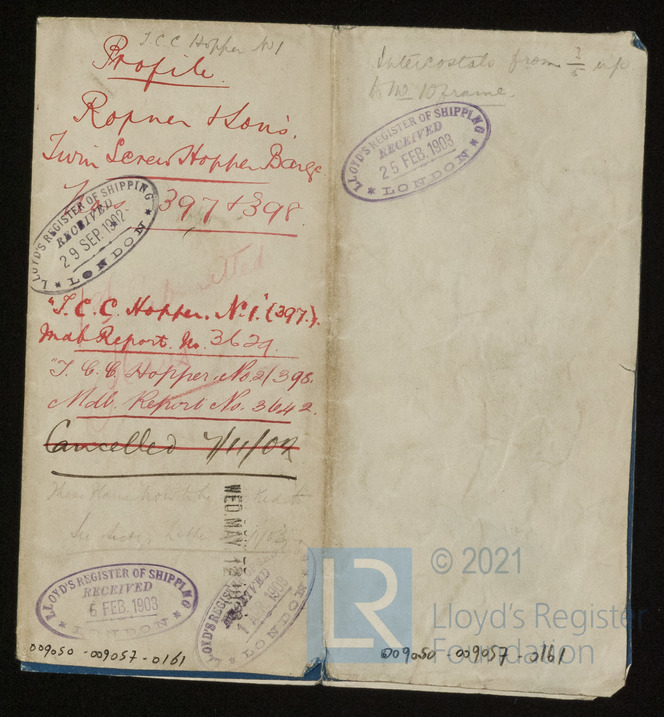 T.C.C Hopper No 1
Profile.
Ropner & Sons.
Twin Screw Hopper Barge
Nos 397 & 398.
LLOYD'S REGISTER OF SHIPPING
RECEIVED
29 SEP. 1902
LONDON
"T.C.C. Hopper. No.1." (397.).
Mdb Report. No. 3629.
"T.C.C. Hopper. No. 2/398.
Mdb. Report No. 3642.
Cancelled 7/11/02
WED. MAY
LLOYD'S REGISTER OF SHIPPING
RECEIVED
6 FEB. 1903
LONDON
LLOYD'S REGISTER OF SHIPPING
RECEIVED
1 APR 1903
LONDON
009050-009057-0161
Intercostals from 3/5 up
to No 10 frame.
LLOYD'S REGISTER OF SHIPPING
RECEIVED
25 FEB. 1903
LONDON
LR
© 2021
Lloyd's Register
Foundation
009050-009057-0161